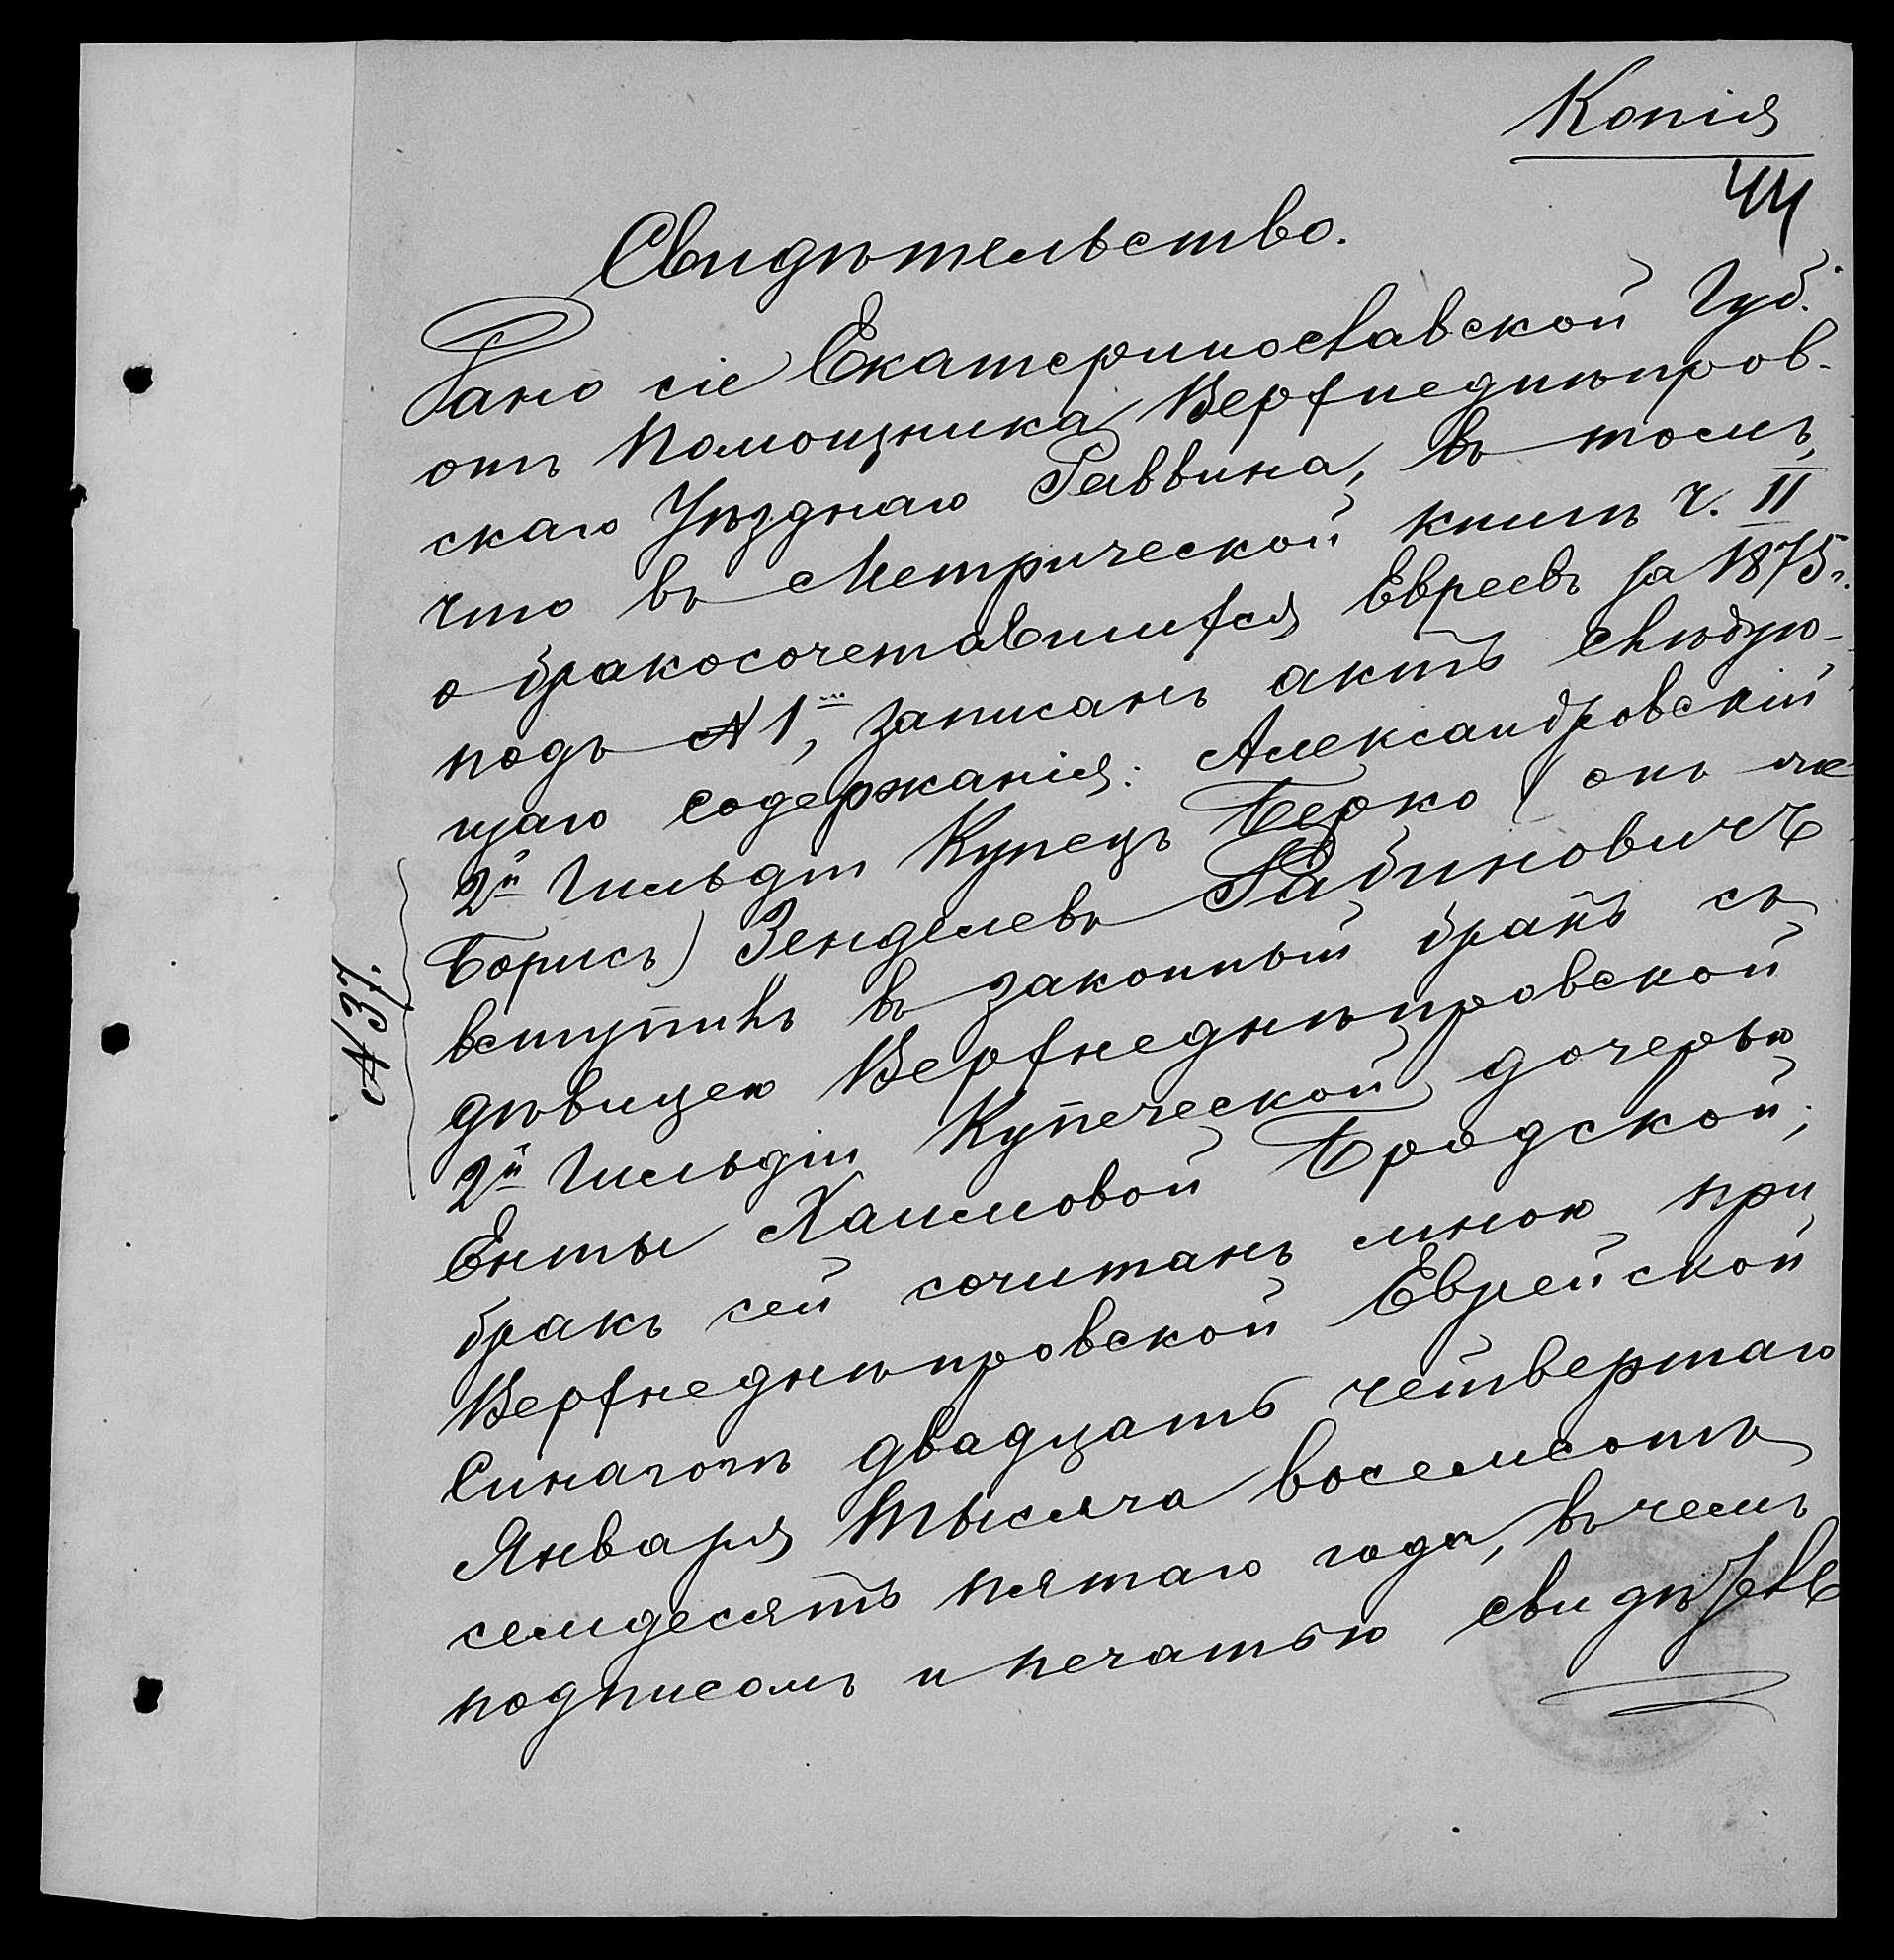 Копія
44
Свидѣтельство.
Дано сіе Екатеринославской Губ.
отъ Помощника Верхнеднѣпров-
скаго Уѣзднаго Раввина, въ томъ,
что въ Метрической книгѣ Ч. II
о бракосочетавшихся Евреевъ за 1875 г.
подъ № 1, записанъ актъ слѣдую-
щаго содержанія: Александровскій
2й Гильдіи Купецъ Берко (онъ же
Борисъ) Зенделевъ Рабиновичъ
вступилъ въ законный бракъ съ
дѣвицею Верхнеднѣпровской
2й Гильдіи Купеческой дочерью
Енты Хаимовой Бродской;
бракъ сей сочитанъ мною при
Верхнеднѣпровской Еврейской
Синагогѣ двадцать четвертаго
Января тысяча восемсотъ
семдесятъ пятаго года, въ чемъ
подписомъ и печатью
№ 37.